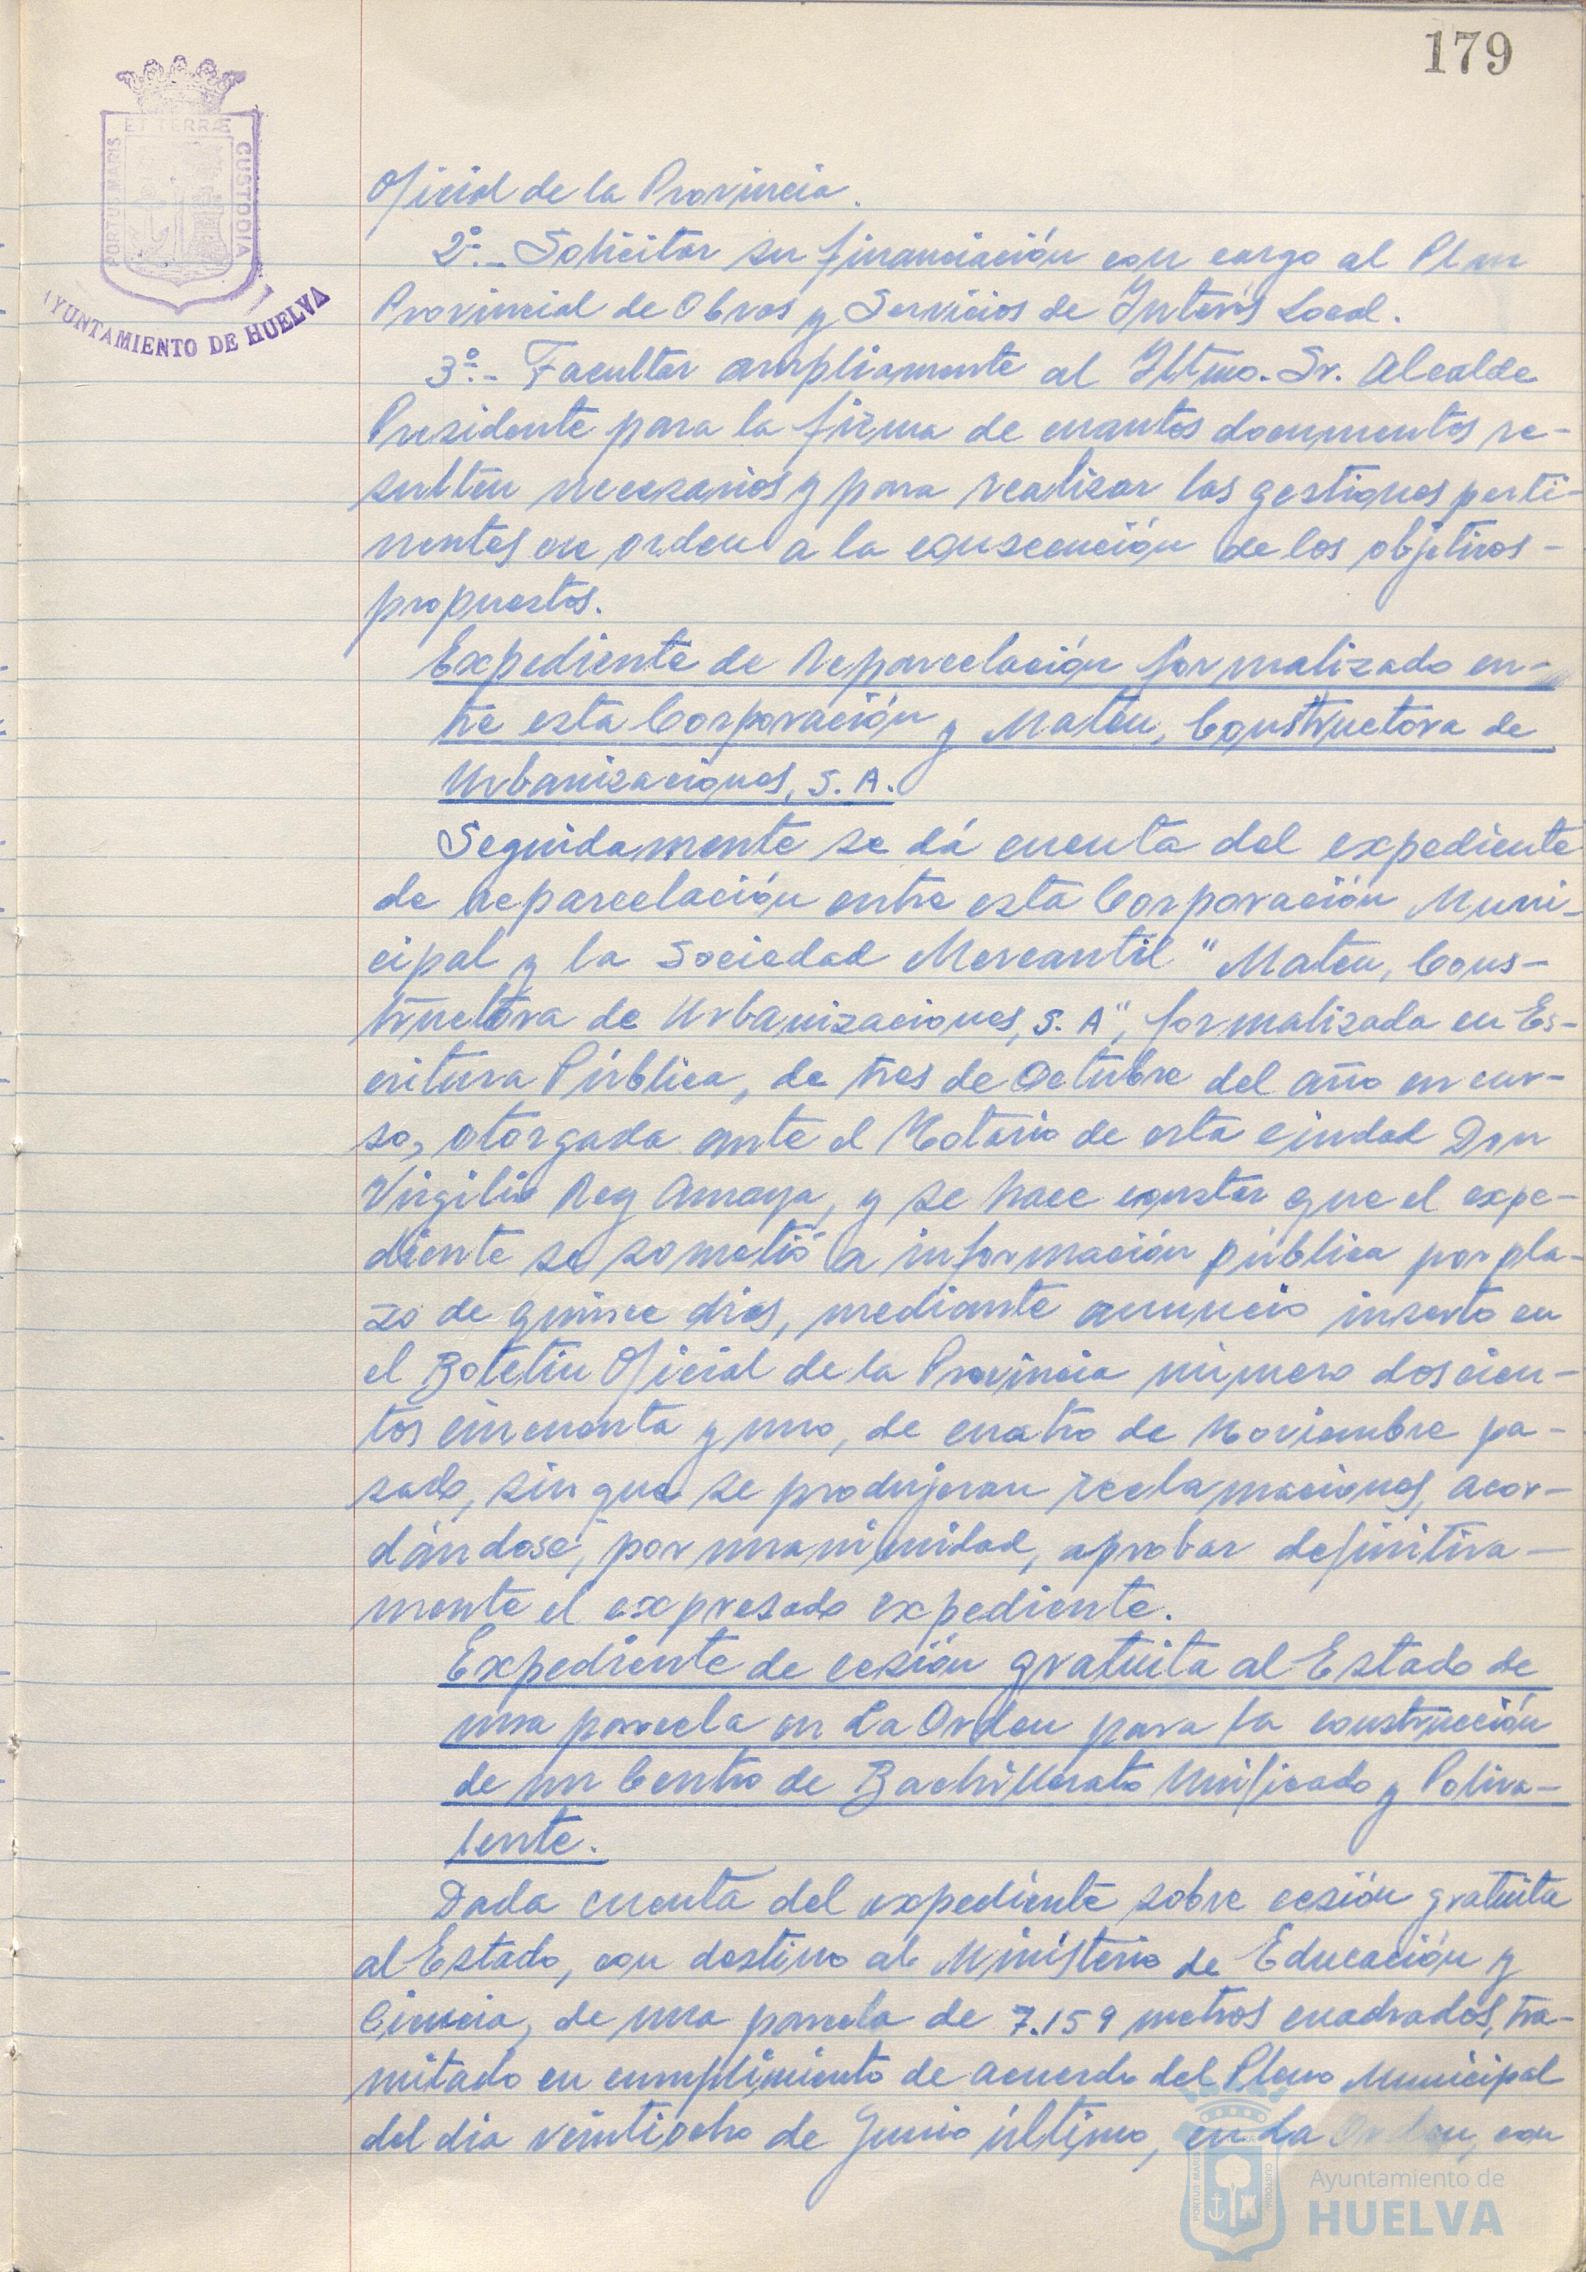 179
ET TERRÆ
PORTUS MARIS
CUSTODIA
AYUNTAMIENTO DE HUELVA
Oficial de la Provincia.
2º.- Solicitar su financiación con cargo al Plan
Provincial de Obras y Servicios de Interés Local.
3º.- Facultar ampliamente al Iltmo. Sr. Alcalde
Presidente para la firma de cuantos documentos re-
sulten necesarios y para realizar las gestiones perti-
nentes en orden a la consecución de los objetivos -
propuestos.
Expediente de Reparcelación formalizado en-
tre esta Corporación y Mateu, Constructora de
Urbanizaciones, S. A.
Seguidamente se dá cuenta del expediente
de reparcelación entre esta Corporación Muni-
cipal y la Sociedad Mercantil "Mateu, Cons-
tructora de Urbanizaciones, S. A", formalizada en Es-
critura Pública, de tres de Octubre del año en cur-
so, otorgada ante el Notario de esta ciudad Don
Virgilio Reg Amaya, y se hace constar que el expe-
diente se sometió a información pública por pla-
zo de quince dias, mediante anuncio inserto en
el Boletin Oficial de la Provincia número doscien-
tos cincuenta y uno, de cuatro de Noviembre pa-
sado, sin que se produjeran reclamaciones, acor-
dándose, por unanimidad, aprobar definitiva-
mente el expresado expediente.
Expediente de cesión gratuita al Estado de
una parcela en La Orden para la construcción
de un Centro de Bachillerato Unificado y Poliva-
lente.
Dada cuenta del expediente sobre cesión gratuita
al Estado, con destino al Ministerio de Educación y
Ciencia, de una parcela de 7.159 metros cuadrados, tra-
mitado en cumplimiento de acuerdo del Pleno Municipal
del dia veintiocho de Junio último, en La Orden, con
Ayuntamiento de
HUELVA